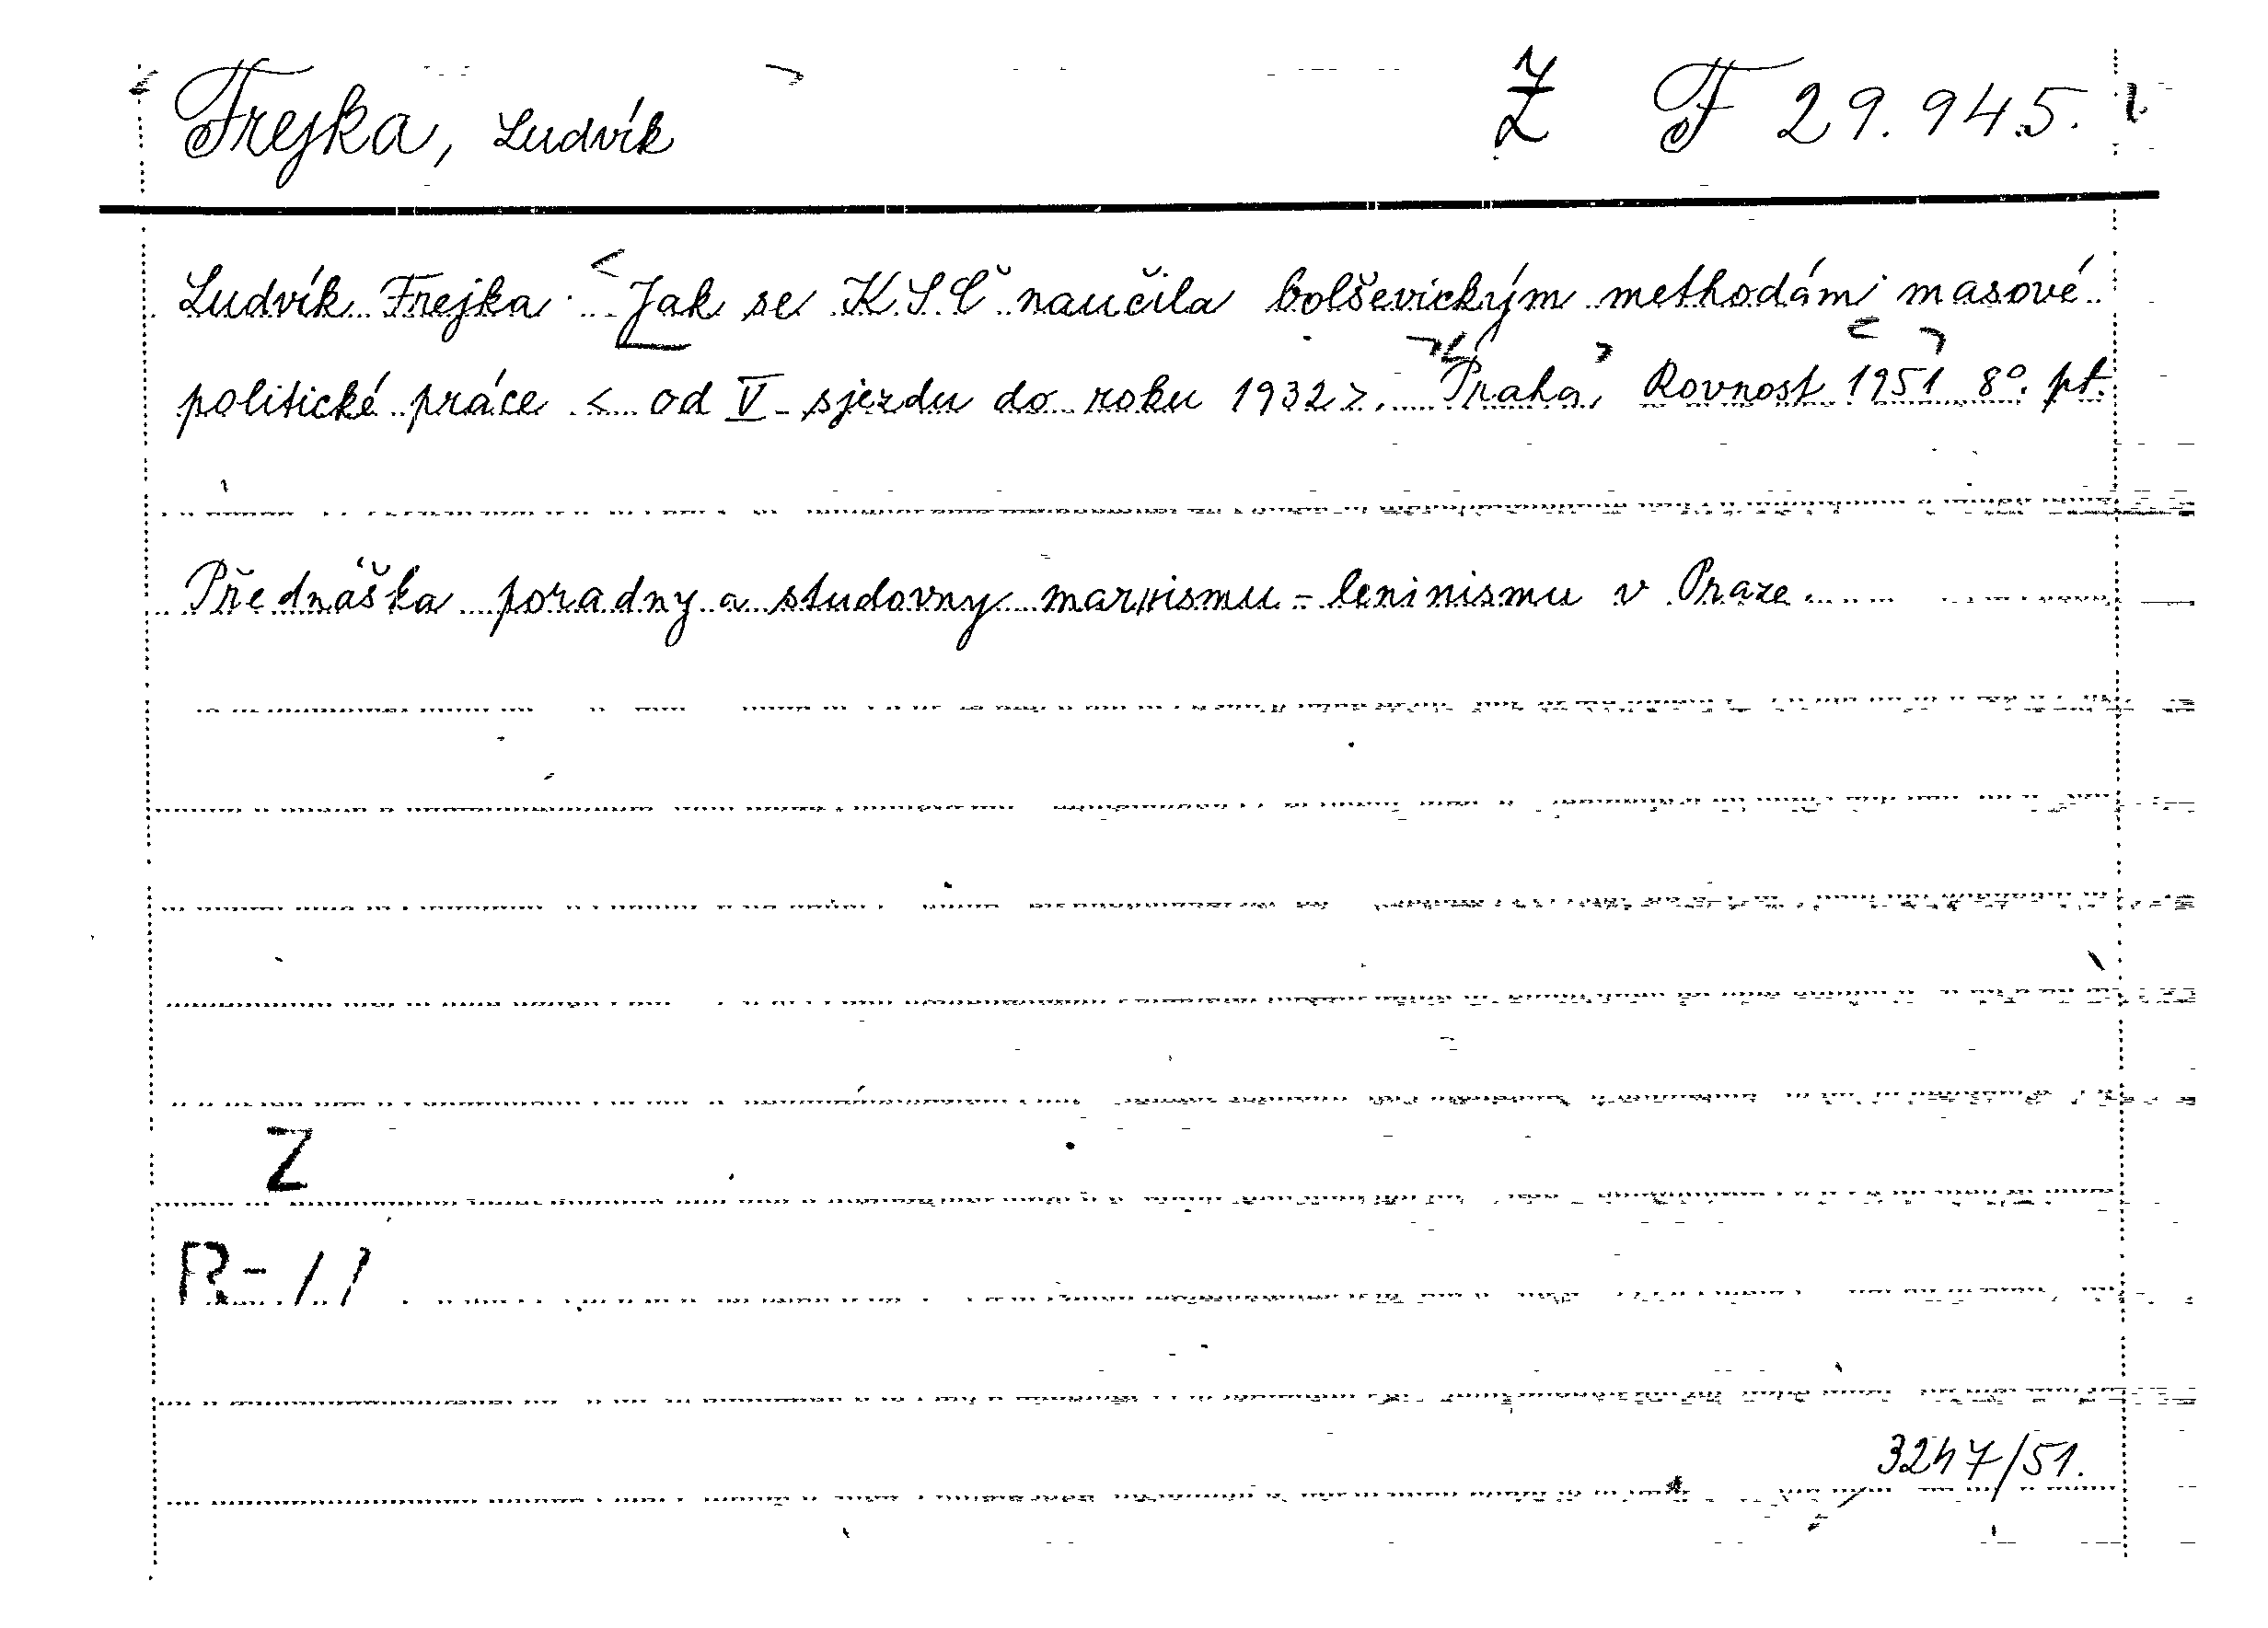 Frejka, Ludvík Ž F 29.945.
Ludvík Frejka: Jak se KSČ naučila bolševickým methodám masové
politické práce < od V. sjezdu do roku 1932 >. Praha, Rovnost 1951 8°. pt.
Přednáška poradny a studovny marxismu-leninismu v Praze.
Z
R-11
3247/51.